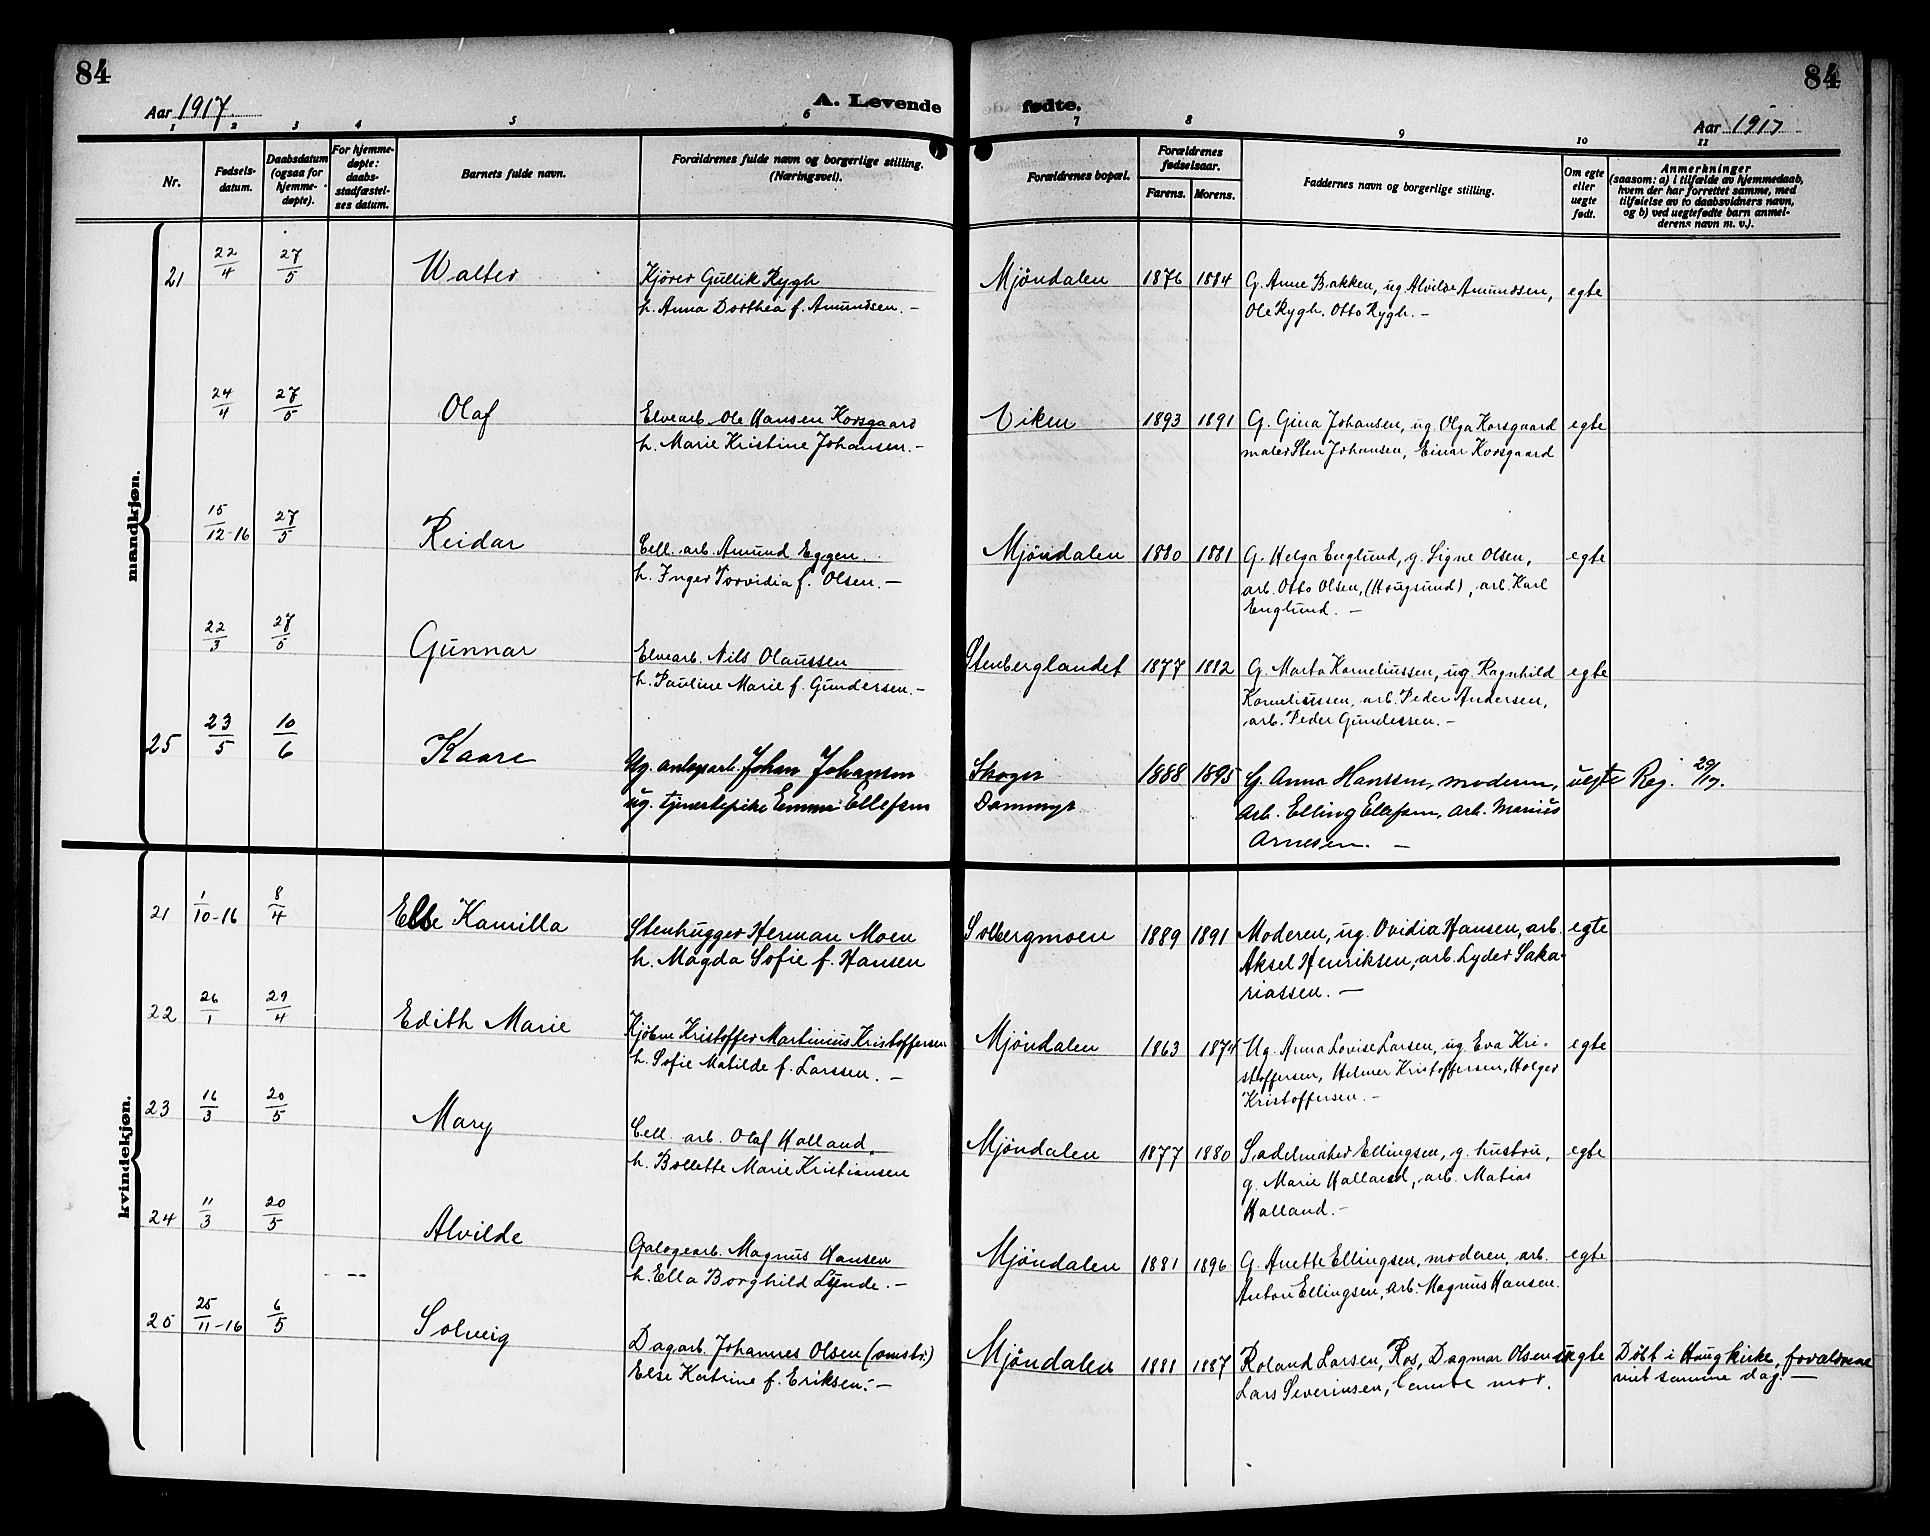 84
84
Aar 1917.
A. Levende
fødte.
Aar 1917
1 2 3 4 5 6 7 8 9 10 11
Nr.
Fødsels-
datum.
Daabsdatum
(ogsaa for
hjemme-
døpte).
For hjemme-
døpte:
daabs-
stadfæstel-
ses datum.
Barnets fulde navn.
Forældrenes fulde navn og borgerlige stilling.
(Næringsvei).
Forældrenes bopæl.
Forældrenes
fødselsaar.
Farens. Morens.
Faddernes navn og borgerlige stilling.
Om egte
eller
uegte
født.
Anmerkninger
(saasom: a) i tilfælde av hjemmedaab,
hvem der har forrettet samme, med
tilføielse av to daabsvidners navn,
og b) ved uegtefødte barn anmel-
derens navn m. v.).
mandkjøn.
21 22/4 27/5 Walter
Kjører Gullik Rygh
h. Anna Dorthea f. Amundsen. –
Mjöndalen 1876 1884
G. Anne Bakken, ug Alvilde Amundsen,
Ole Rygh. Otto Rygh. –
egte
24/4 27/5 Olaf
Elvearb. Ole Hansen Korsgaard
h. Marie Kristine Johansen. –
Viken 1893 1891
G. Gina Johansen, ug. Olga Korsgaard
maler Sten Johansen, Einar Korsgaard
egte
15/12-16 27/5 Reidar
Cell. arb. Amund Eggen.
h. Inger Torvidia f. Olsen. –
Mjöndalen 1880 1881
G. Helga Englund, g. Signe Olsen,
arb. Otto Olsen, (Hougsund), arb. Karl
Englund. –
egte
22/3 27/5 Gunnar
Elvearb. Nils Olaussen
h. Pauline Marie f. Gundersen. –
Stenberglandet 1877 1882
G. Marta Korneliussen, ug. Ragnhild
Korneliussen, arb. Peder Andersen,
arb. Peder Gundessen. –
egte
25 23/5 10/6 Kaare
Ug. anlegsarb. Johan Johansen
ug. tjenestepike Emma Ellefsen
Skoger
Dammyr
1888 1895
G. Anna Hanssen, moderen,
arb. Elling Ellefsen, arb. Marius
Arnesen. –
uegte Reg. 29/17.
kvindekjøn.
21 1/10-16 8/4 Else Kamilla
Stenhugger Herman Moen
h. Magda Sofie f. Hansen
Solbergmoen 1889 1891
Moderen, ug. Ovidia Hansen, arb.
Aksel Henriksen, arb. Lyder Saka-
riassen. –
egte
22 26/1 29/4 Edith Marie
Kjöbm Kristoffer Martinius Kristoffersen
h. Sofie Matilde f. Larssen. –
Mjöndalen 1863 1874
Ug. Anna Lovise Larsen, ug. Eva Kri-
stoffersen, Helmer Kristoffersen, Holger
Kristoffersen. –
egte
23 16/3 20/5 Mary
Cell. arb. Olaf Halland,
h. Bollette Marie Kristiansen
Mjöndalen 1877 1880
Sadelmaker Ellingsen, g. hustru,
g. Marie Halland, arb. Matias
Halland. –
egte
24 11/3 20/5 Alvilde
Galogearb. Magnus Hansen
h. Ella Borghild Lynde. –
Mjöndalen 1881 1896
G. Anette Ellingsen, moderen, arb.
Anton Ellingsen, arb. Magnus Hansen.
egte
25 25/11-16 6/5 Solveig
Dagarb. Johannes Olsen (omstr.)
Else Katrine f. Eriksen. –
Mjöndalen 1881 1887
Roland Larsen, Ros, Dagmar Olsen
Lars Severinsen, samt mor.
uegte
Döbt i Haug kirke, forældrene
viet samme dag. –